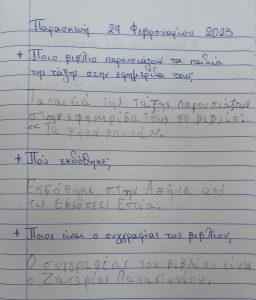 Παρασκευή 24 Φεβρουαρίου 2023
+ Ποιο βιβλίο παρουσιάζουν τα παιδιά
της τάξης στην εφημερίδα τους;
Τα παιδιά της τάξης παρουσιάζουν
στην εφημερίδα τους το βιβλίο:
<< Τα ψηλά βουνά >>.
+ Πού εκδόθηκε;
Εκδόθηκε στην Αθήνα από
τις Εκδόσεις Εστία.
+ Ποιος είναι ο συγγραφέας του βιβλίου;
Ο συγγραφέας του βιβλίου είναι
ο Ζαχαρίας Παπαντωνίου.